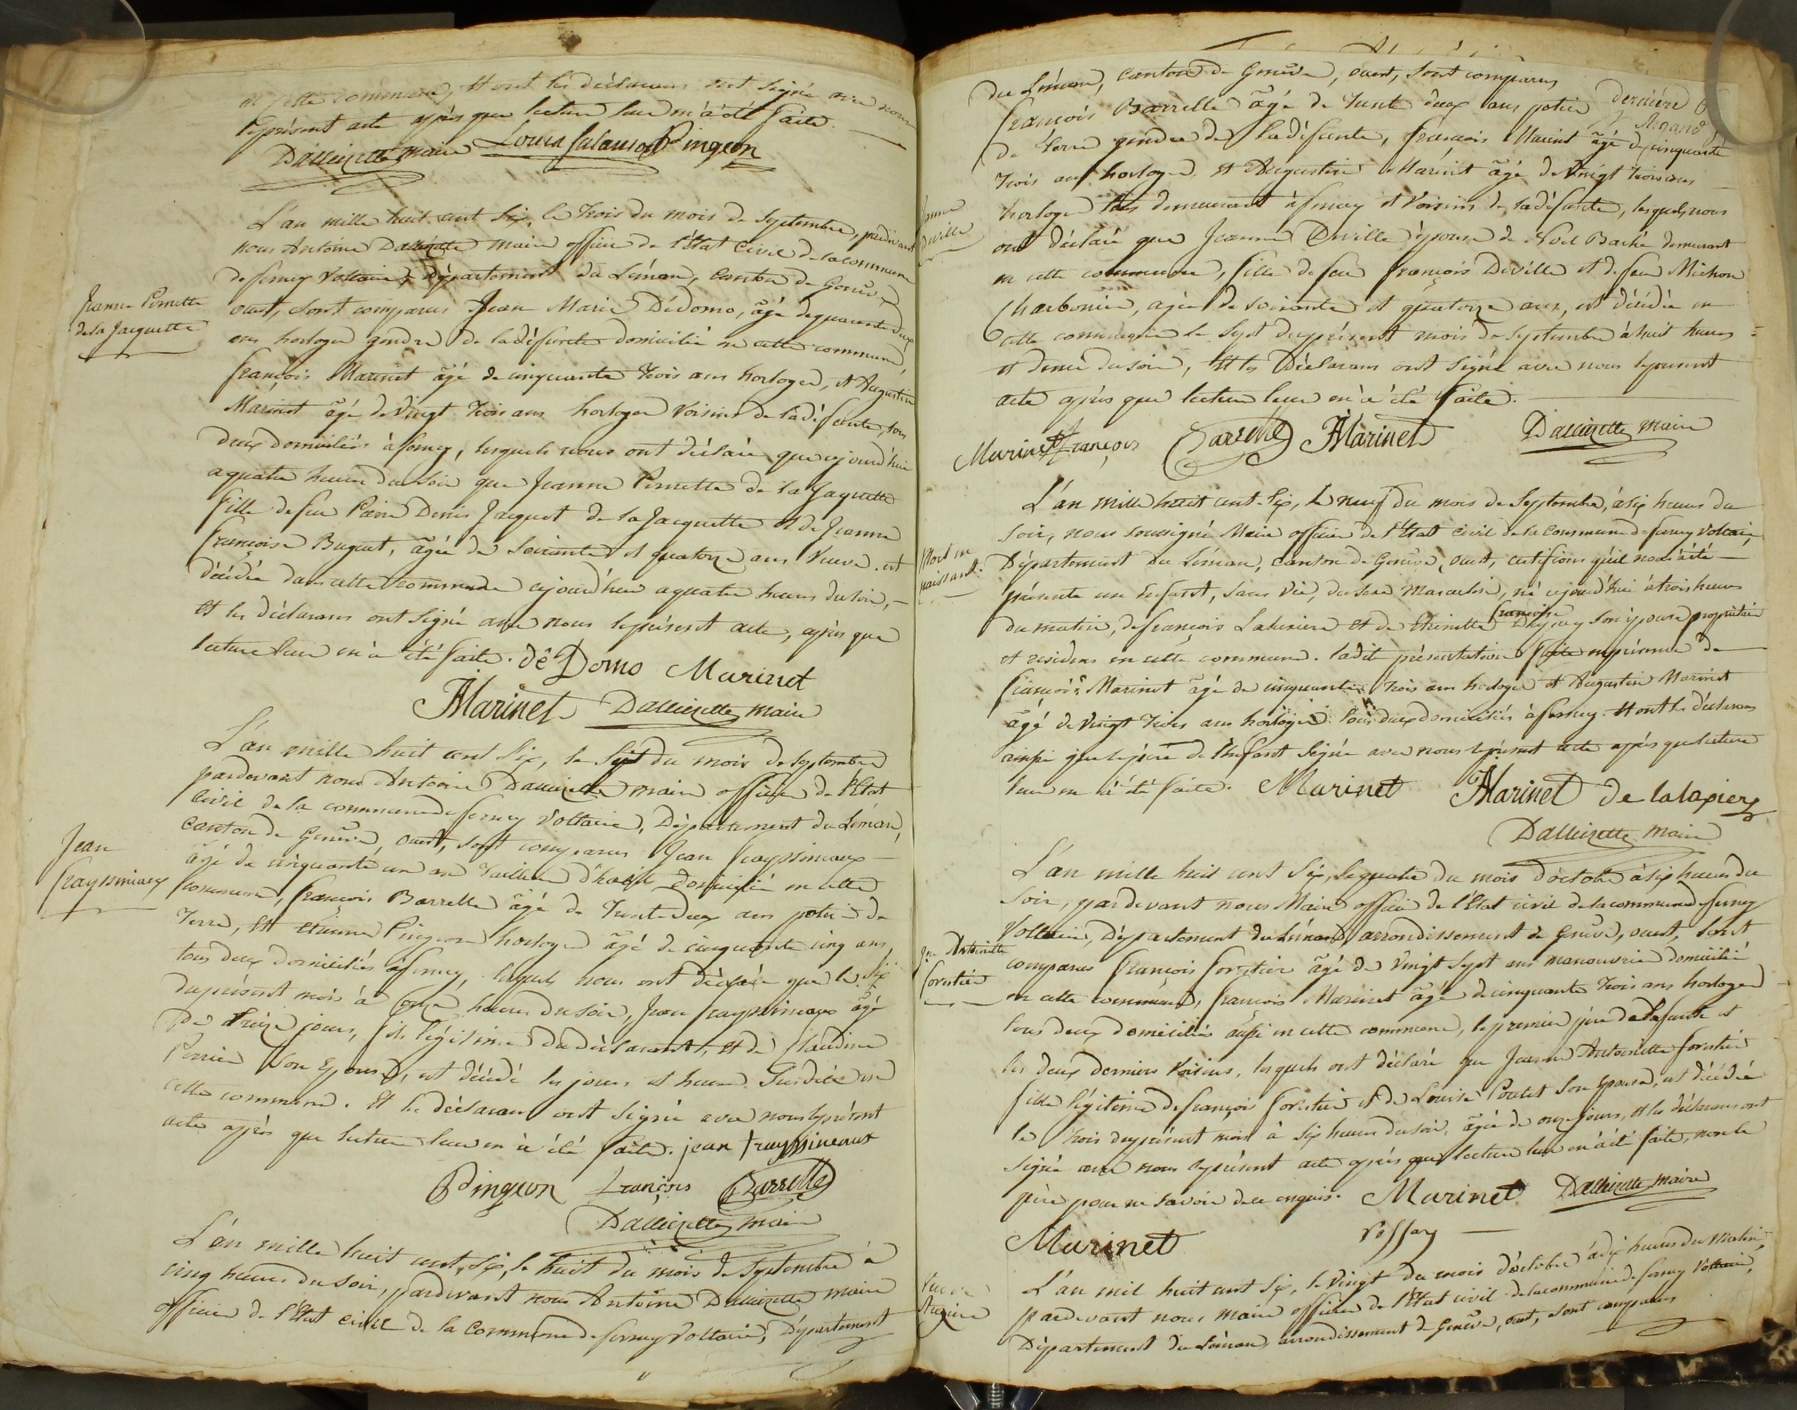 de cette commune, et ont les déclarans ont signé avec nous
le présent acte après que lecture leur en a été faite.
Dallizette maire Louis Pingeon
L'an mille huit cent six, le trois du mois de Septembre, pardevant
nous Antoine Dallizette maire officier de l'état Civil de la commune
de ferney Voltaire, Département du Léman, Canton de Genève
ouest, sont comparus Jean Marie Dédomo, âgé de quarante deux
Janne Pernette
de la Jacquette
ans horloger gendre de la défunte domicilié en cette commune,
françois Marinet âgé de cinquante trois ans horloger, et Augustin
Marinet âgé de Vingt trois ans horloger Voisins de la défunte, tous
deux domiciliés à ferney, lesquels nous ont déclaré que cejourd'hui
a quatre heures du soir que Jeanne Pernette de la Jaquette
fille de feu Pierre Denis Jacquet de la Jacquette et de Jeanne
françoise Buguet, âgée de Soixante et quatorze ans Veuve, est
décédée dans cette commune cejourd'hui a quatre heures du soir,
et les déclarans ont signé avec nous le présent acte, après que
lecture leur en a été faite. dé Domo Marinet
AMarinet Dallizette maire
L'an mille huit cent six, le sept du mois de Septembre
pardevant nous Antoine Dallizette maire officier de l'état
Civil de la commune de ferney Voltaire, Département du Léman,
Canton de Genève, ouest, sont comparus Jean frayssineaux
Jean
frayssineaux
âgé de cinquante un ans tailleur d'habit, domicilié en cette
commune, françois Barrelle âgé de trente deux ans potier de
terre, et etienne Pingeon horloger âgé de cinquante cinq ans,
tous deux domiciliés à ferney, lesquels nous ont déclaré que le six
du présent mois à onze heures du soir, Jean frayssineaux âgé
de treize jours, fils légitime du déclarant, et de Claudine
Perrier son Epouse, est décédé les jours et heure susdite en
cette commune. Et les déclarans ont signé avec nous le présent
acte après que lecture leur en a été faite. jean frayssineaux
Pingeon françois Barrelle
Dallizette maire
L'an mille huit cent six, le huit du mois de Septembre à
cinq heures du soir, pardevant nous Antoine Dallizette maire
officier de l'état civil de la Commune de ferney Voltaire, Département
du Léman, Canton de Genève, ouest, sont comparus
françois Barrelle âgé de trente deux ans potier
dernière
de terre gendre de la défunte, françois Marinet âgé de cinquante
trois ans horloger et Augustin Marinet âgé de Vingt trois ans
horloger tous demeurant à ferney et Voisins de la défunte, lesquels nous
Deville
ont déclaré que Jeanne Deville épouse de Noël Baché demeurant
en cette commune, fille de feu françois Deville et de feue Michon
Charbonier, agée de soixante et quatorze ans, est décédée en
cette commune le sept du présent mois de Septembre à huit heures
et demie du soir, et les Déclarans ont signé avec nous le présent
acte après que lecture leur en a été faite.
Marinet françois Barrelle AMarinet Dallizette maire
L'an mille huit cent six, le neuf du mois de Septembre, à six heures du
soir, nous soussigné Maire officier de l'état civil de la commune de ferney Voltaire,
Mort en
naissant.
Département du Léman, Canton de Genève, ouest, certifions qu'il nous a été
présenté un Enfant, sans vie, du sexe masculin, né cejourd'hui à trois heures
du matin, de françois Lalexiere et de Etiennette françoise son épouse propriétaire
et résidens en cette commune. ladite présentation faite en présence de
françois Marinet âgé de cinquante trois ans horloger et Augustin Marinet
âgé de Vingt trois ans horloger tous deux domiciliés à ferney. Et ont les déclarans
ainsi que le père de l'enfant signé avec nous le présent acte après que lecture
leur en a été faite. Marinet AMarinet de lalapierre
Dallizette maire
L'an mille huit cent six, le quatre du mois d'octobre à six heures du
soir, pardevant nous Maire officier de l'état civil de la commune de ferney
Voltaire, Département du Léman, arrondissement de Genève, ouest, sont
Jne Antoinette
forestier
comparus françois forestier âgé de Vingt sept ans manouvrier domicilié
en cette commune, françois Marinet âgé de cinquante trois ans horloger
tous deux domiciliés aussi en cette commune, le premier père de la défunte et
les deux derniers Voisins, lesquels ont déclaré que Jeanne Antoinette forestier
fille légitime de françois forestier et de Louise Poulet son épouse, est décédée
le trois du présent mois à six heures du soir, âgée de onze jours, et les déclarans ont
signé avec nous le présent acte après que lecture leur en a été faite, non le
père pour ne savoir de ce enquis. Marinet Dallizette maire
Marinet
L'an mil huit cent six, le Vingt du mois d'octobre à dix heures du matin,
pardevant nous maire officier de l'état civil de la commune de ferney Voltaire,
Département du Léman, arrondissement de Genève, ouest, sont comparus